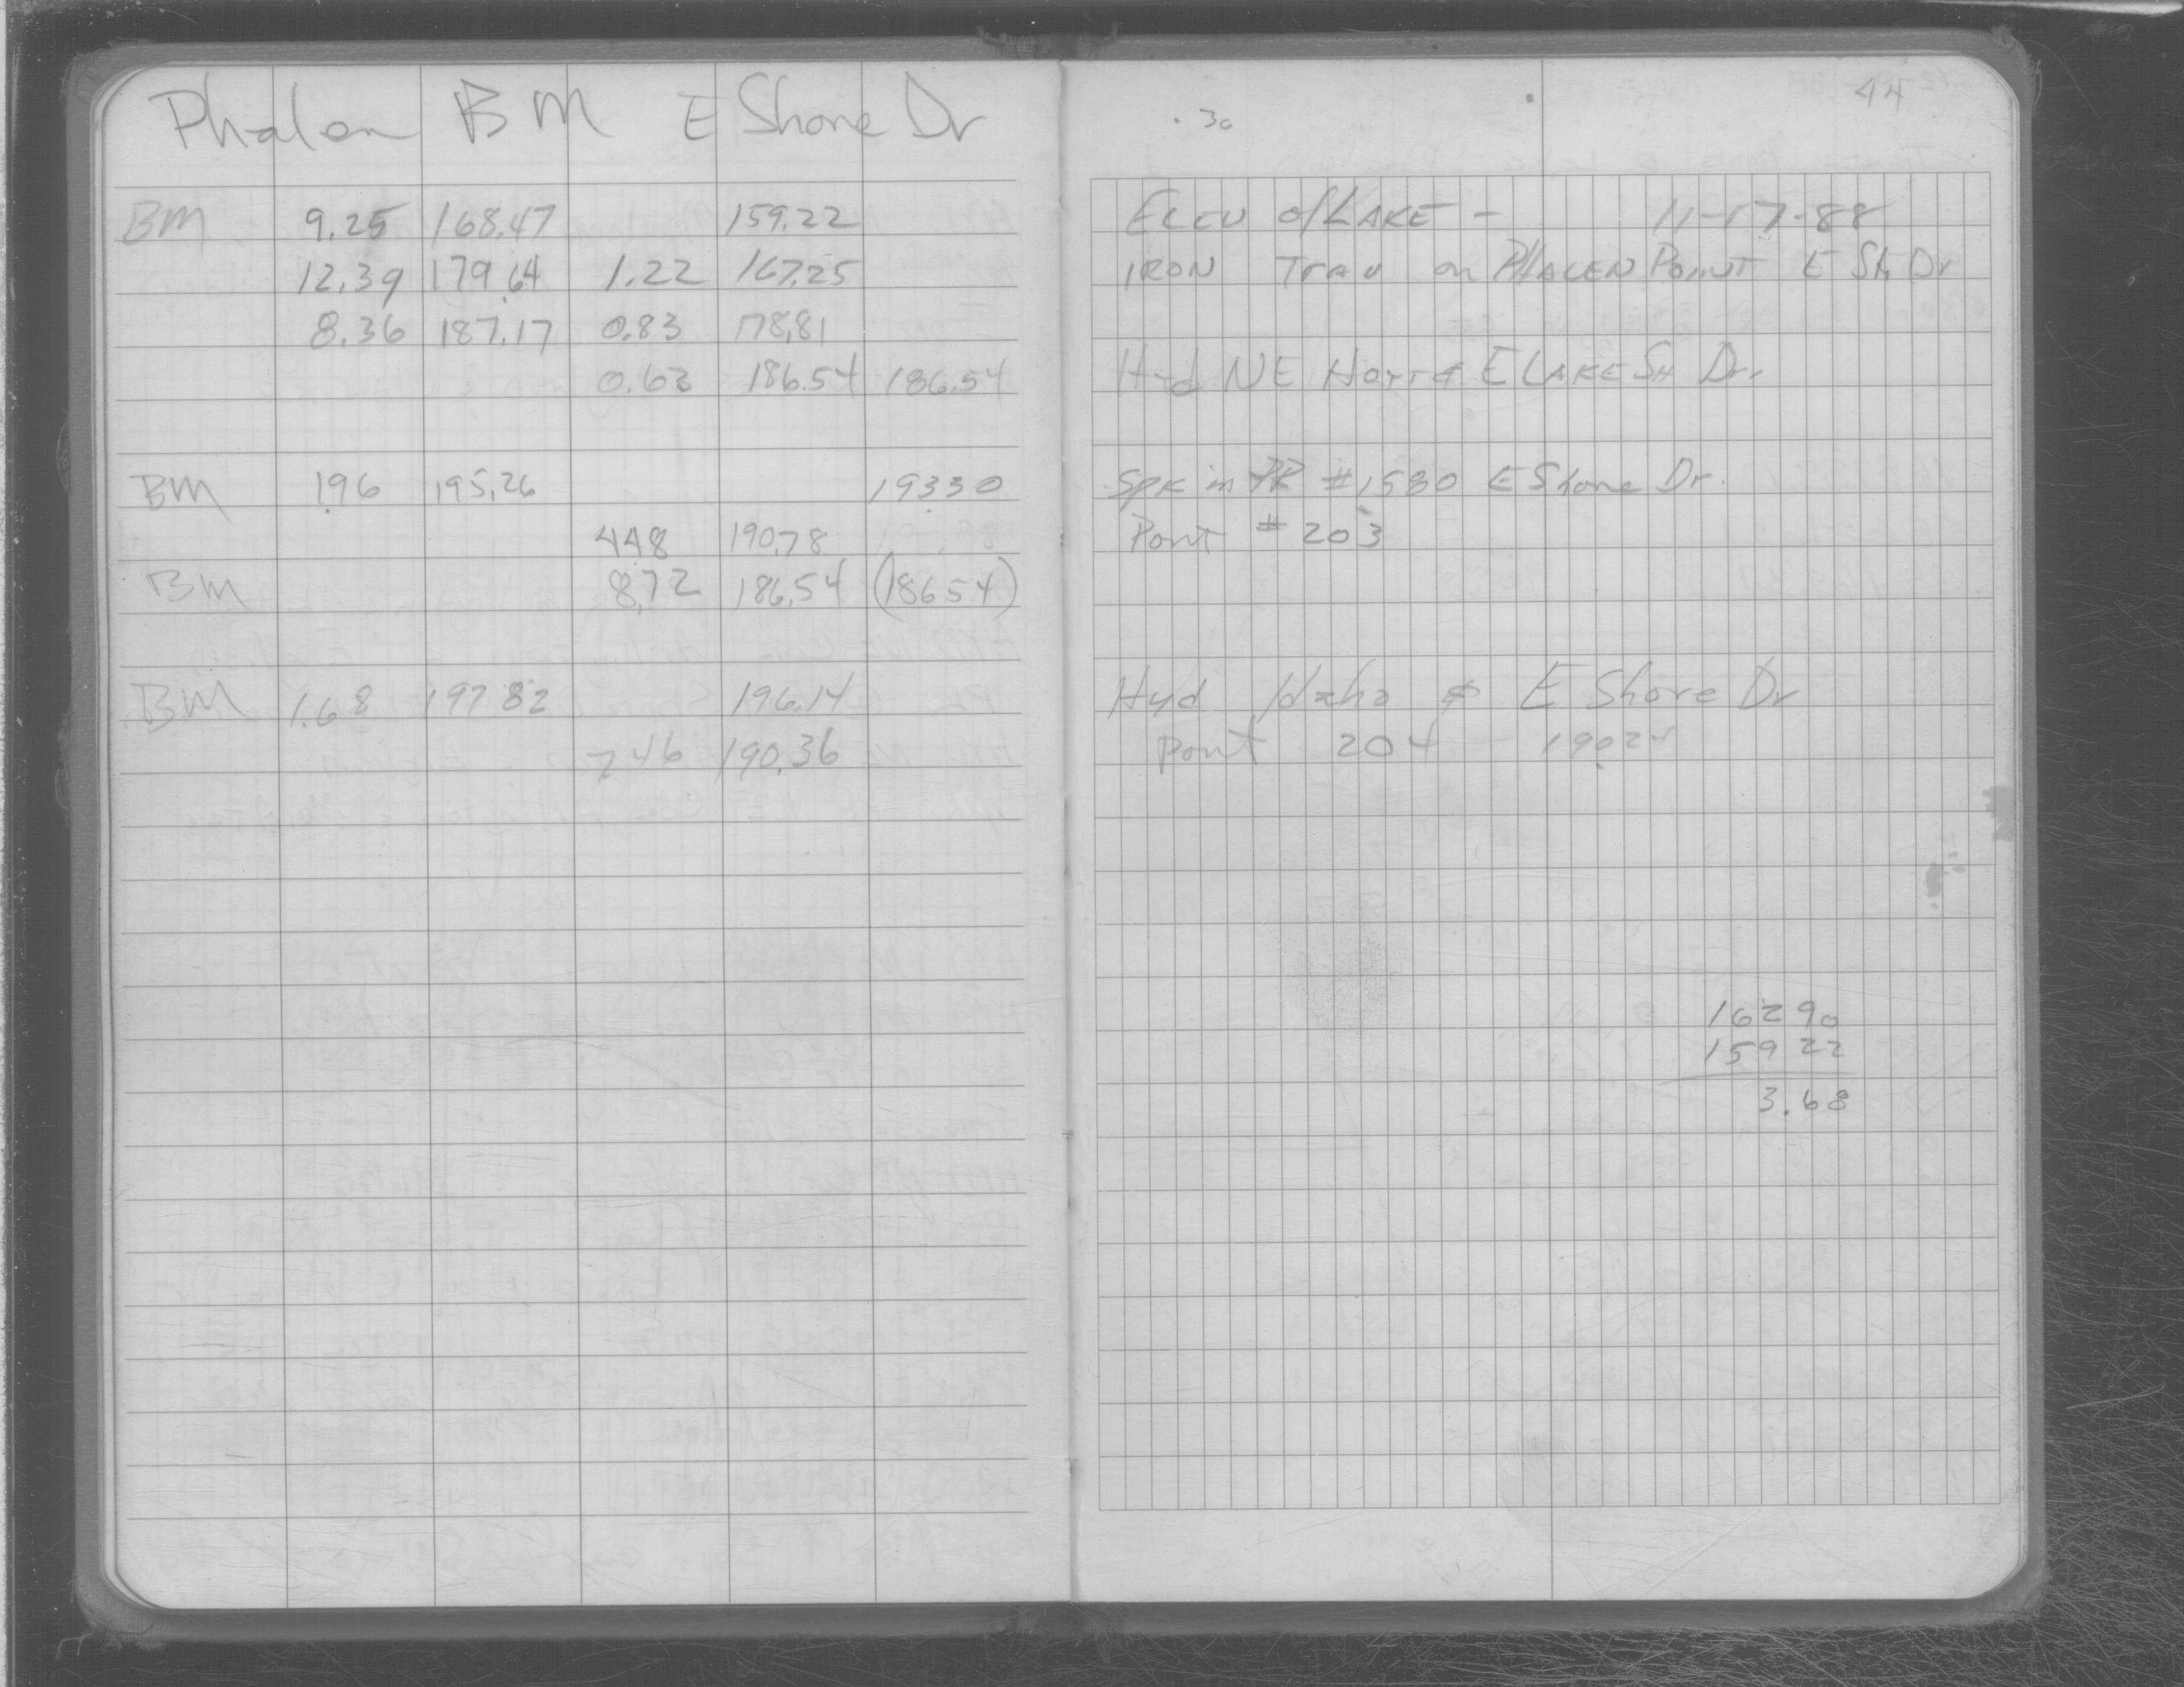 Phalen BM E Shore Dr
BM 9.25 168.47 159.22
12.39 179.64 1.22 167.25
8.36 187.17 0.83 178.81
0.63 186.54 186.54
BM 1.96 195.26 193.30
4.48 190.78
BM 8.72 186.54 (186.54)
BM 1.68 197.82 196.14
7.46 190.36
44
.30
ELEV of LAKE - 11-17-88
IRON Trav on PHALEN POINT E Sh Dr
Hyd NE HOYT & E LAKE SH Dr.
Spk in PR #1580 E Shore Dr.
Pont #203
Hyd Idaho & E Shore Dr
Pont 204
162 90
159 22
3.68